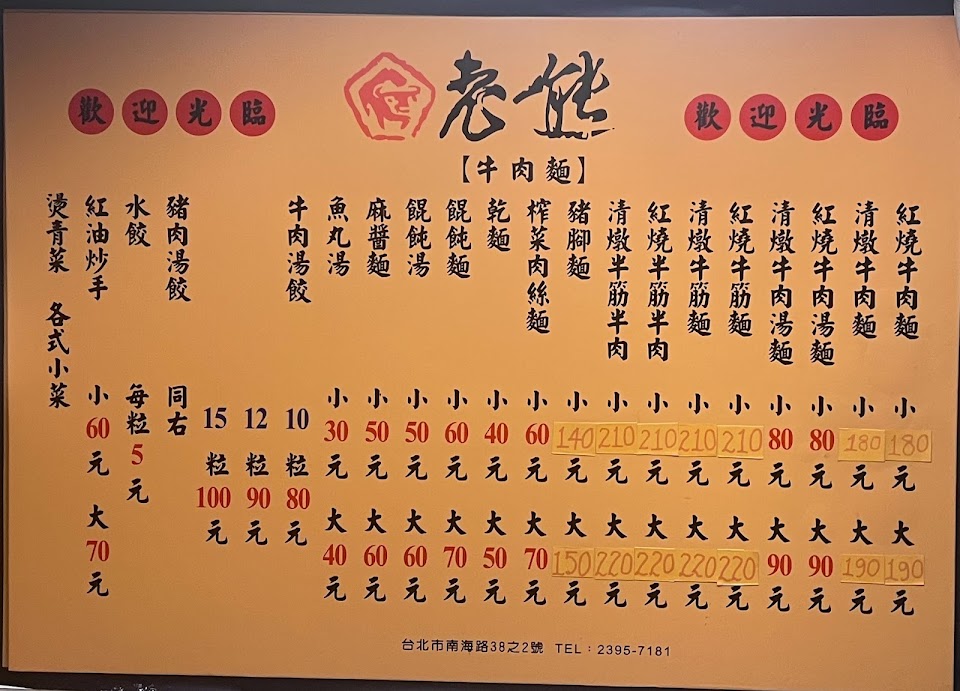 歡迎光臨
老熊
歡迎光臨
【牛肉麵】
紅燒牛肉麵 小180元 大190元
清燉牛肉麵 小180元 大190元
紅燒牛肉湯麵 小80元 大90元
清燉牛肉湯麵 小80元 大90元
紅燒牛筋麵 小210元 大220元
清燉牛筋麵 小210元 大220元
紅燒半筋半肉 小210元 大220元
清燉半筋半肉 小210元 大220元
豬腳麵 小140元 大150元
榨菜肉絲麵 小60元 大70元
乾麵 小40元 大50元
餛飩麵 小60元 大70元
餛飩湯 小50元 大60元
麻醬麵 小50元 大60元
魚丸湯 小30元 大40元
牛肉湯餃 10粒80元
12粒90元
15粒100元
豬肉湯餃 同右
水餃 每粒5元
紅油炒手 小60元 大70元
燙青菜 各式小菜
台北市南海路38之2號 TEL：2395-7181